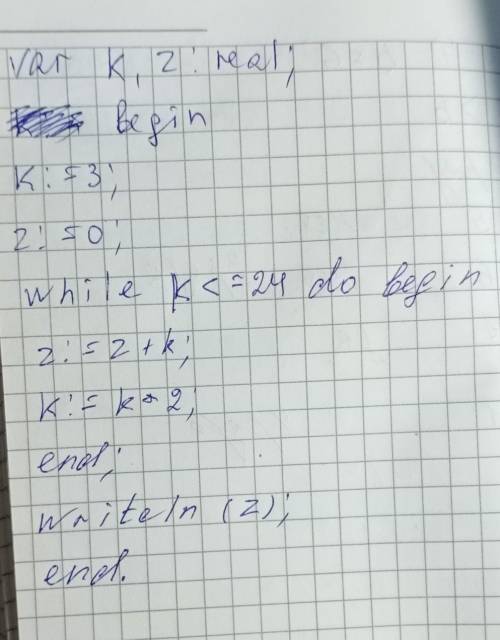 var k, z : real;
begin
k := 3;
z := 0;
while k <= 24 do begin
z := z + k;
k := k * 2;
end;
writeln (z);
end.